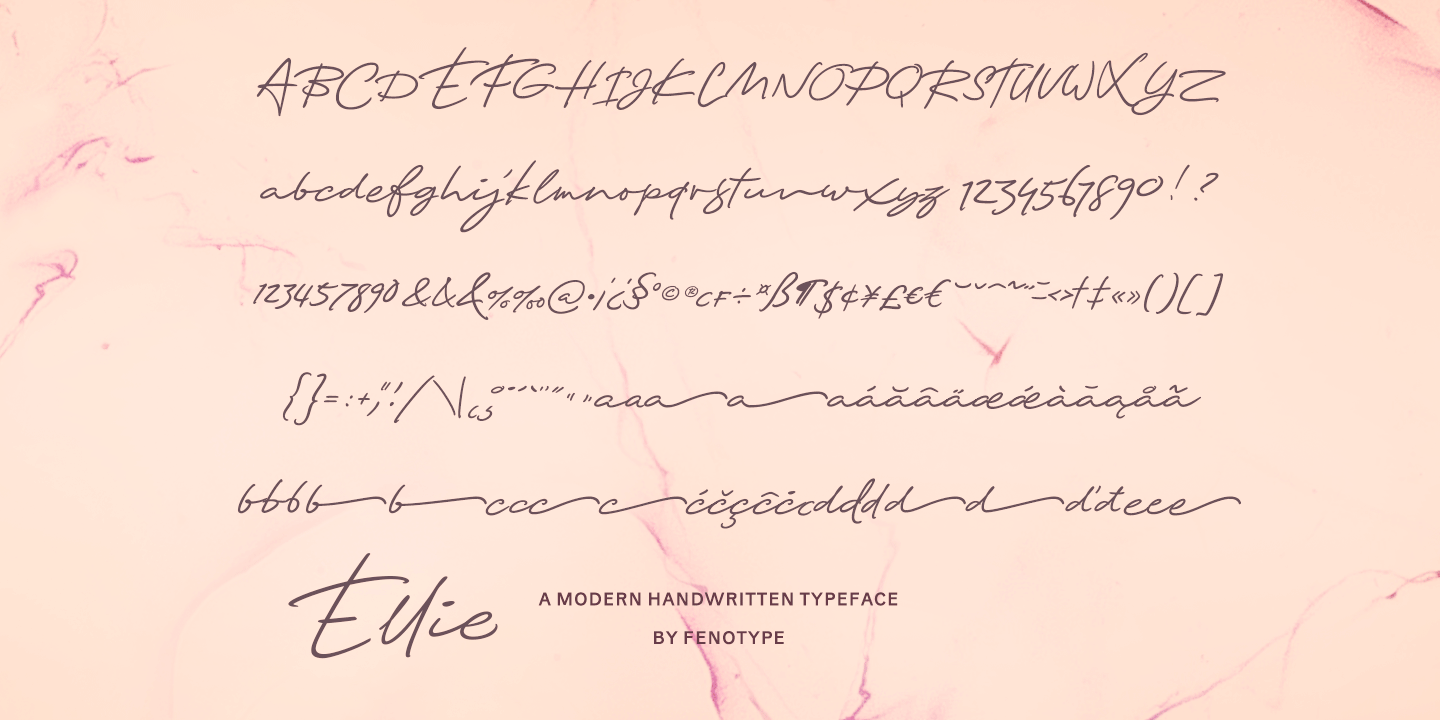 ABCDEFGHIJKLMNOPQRSTUVWXYZ
abcdefghijklmnopqrstuvwxyz 1234567890!?
1234567890&&&%‰@•¡¿§°©®CF÷¤ß¶$¢¥£€€
<>†‡«»()[]
{}=:+;"!/\|
aaaaaáăâäæǽàāąåã
bbbbbccccćčçĉċddddddďđeee
Ellie
A MODERN HANDWRITTEN TYPEFACE
BY FENOTYPE